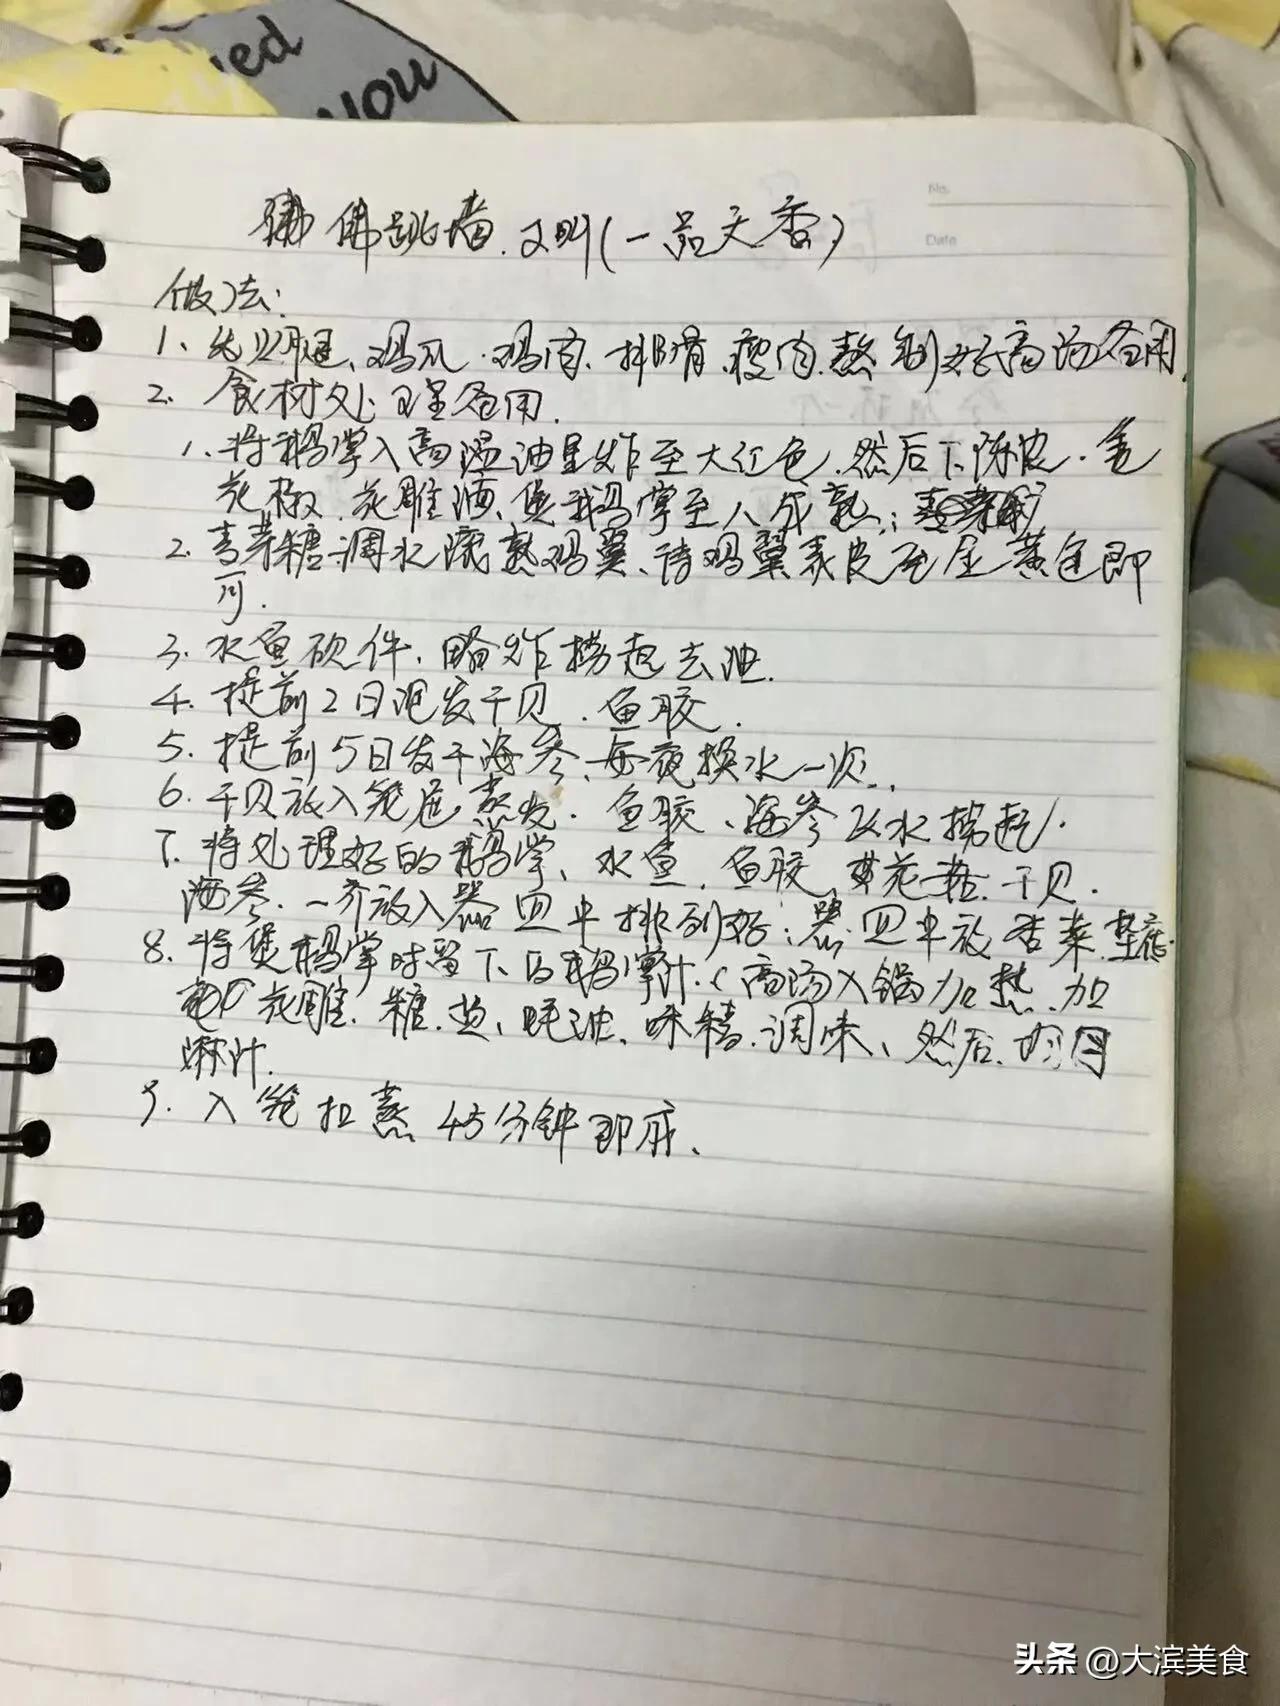 yed
you
No.
Date
佛跳墙.又叫(一品天香)
做法:
1、先以腿、鸡爪.鸡肉.排骨.瘦肉.熬制好高汤备用.
2. 食材处理备用.
1.将鹅掌入高温油里炸至大红色.然后下陈皮.
花椒.花雕酒.煲鹅掌至八成熟;
2.麦芽糖调水 鸡翼、鸡翼表皮 金黄色即
可.
3. 水鱼 件.略炸捞起去油.
4. 提前2日泡发干贝.鱼胶.
5. 提前5日发干海参.每夜换水一次.
6. 干贝放入笼 蒸发.鱼胶、海参 水捞起.
7. 将处理好的鹅掌、水鱼.鱼胶.花菇.干贝.
海参.一齐放入器皿中排列好;器皿中放香菜垫底.
8. 将煲鹅掌时留下的鹅掌汁.(高汤入锅加热.加
花雕.糖.盐、蚝油、味精.调味、然后.
淋汁.
9. 入笼扣蒸45分钟即成、
头条 @大滨美食